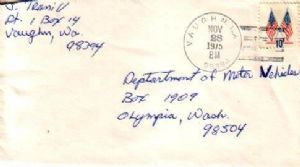 J. Trani V
Rt. 1 Box 14
Vaughn, Wa
98394
VAUGHN, WA
NOV
28
1975
PM
10¢
Deptartment of Motor Vehicles
Box 1909
Olympia, Wash.
98504